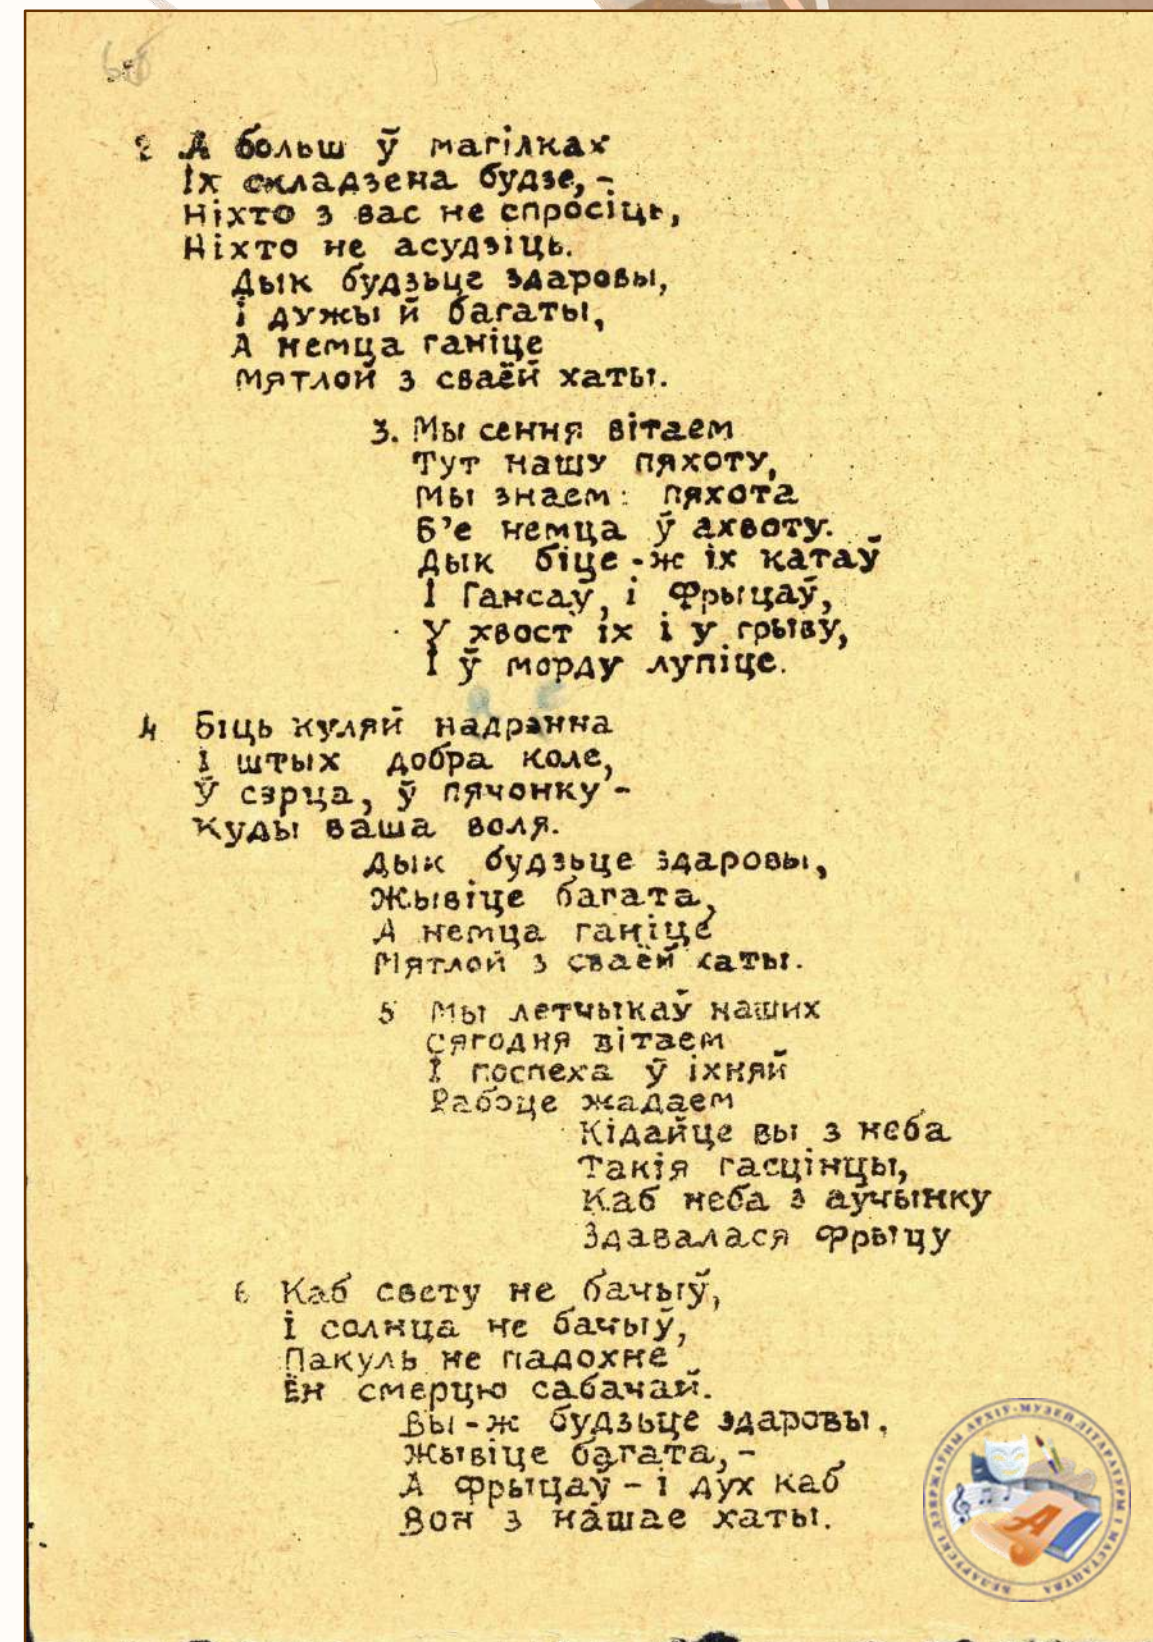 2 А больш ў магілках
Іх складзена будзе, -
Ніхто з вас не спросіць,
Ніхто не асудзіць.
Дык будзьце здаровы,
І дужы й багаты,
А немца ганіце
Мятлой з сваёй хаты.
3. Мы сення вітаем
Тут нашу пяхоту,
Мы знаем: пяхота
Б'е немца ў ахвоту.
Дык біце-ж іх катаў
І Гансаў, і Фрыцаў,
У хвост іх і у грыву,
І ў морду лупіце.
4 Біць куляй надрэнна
І штых добра коле,
Ў сэрца, ў пячонку -
Куды ваша воля.
Дык будзьце здаровы,
Жывіце багата,
А немца ганіце
Мятлой з сваёй хаты.
5 Мы летчыкаў наших
Сягодня вітаем
І поспеха ў іхняй
Рабоце жадаем
Кідайце вы з неба
Такія гасцінцы,
Каб неба з аўчынку
Здавалася Фрыцу
6 Каб свету не бачыў,
І солнца не бачыў,
Пакуль не падохне
Ён смерцю сабачай.
Вы-ж будзьце здаровы,
Жывіце багата, -
А Фрыцаў - і дух каб
Вон з нашае хаты.
БЕЛАРУСКІ ДЗЯРЖАЎНЫ АРХІЎ-МУЗЕЙ ЛІТАРАТУРЫ І МАСТАЦТВА